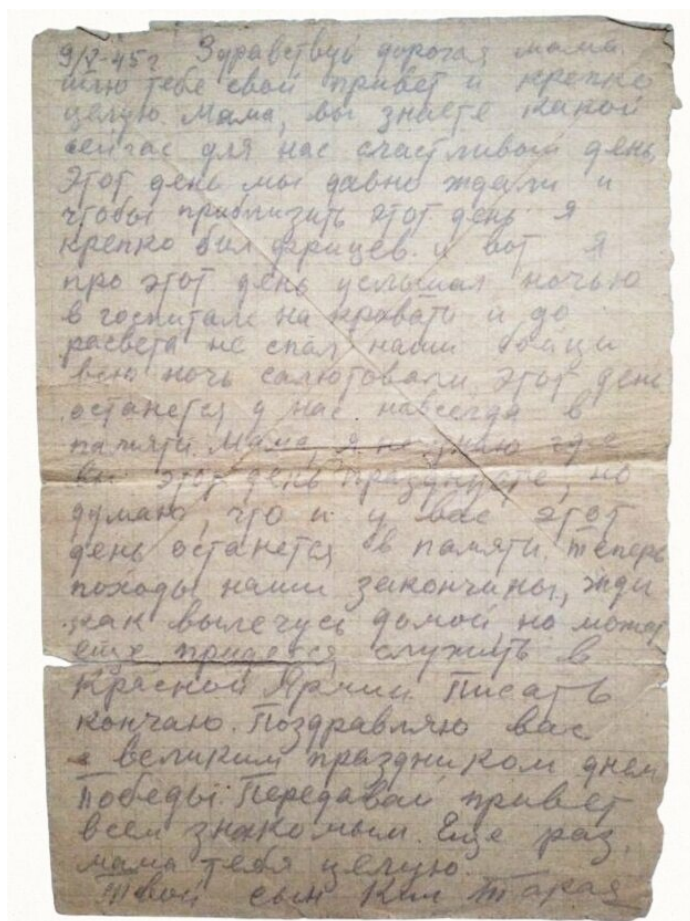 9/V-45г Здравствуй дорогая мама
шлю тебе свой привет и крепко
целую. Мама, вы знаете какой
сейчас для нас счастливый день,
этот день мы давно ждали и
чтобы приблизить этот день я
крепко бил фрицев. и вот я
про этот день услышал ночью
в госпитале на кровати и до
расвета не спал наши бойци
всю ночь салютовали. этот день
останется у нас навсегда в
памяти. Мама, я не знаю где
вы этот день празднуете, но
думаю, что и у вас этот
день останется в памяти. Теперь
походы наши закончины, жди
как вылечусь домой но может
еще придется служить в
Красной Армии. Писать
кончаю. Поздравляю вас
с великим праздником днем
Победы. Передавай привет
всем знакомым. Еще раз,
мама тебя целую.
Твой сын Ким